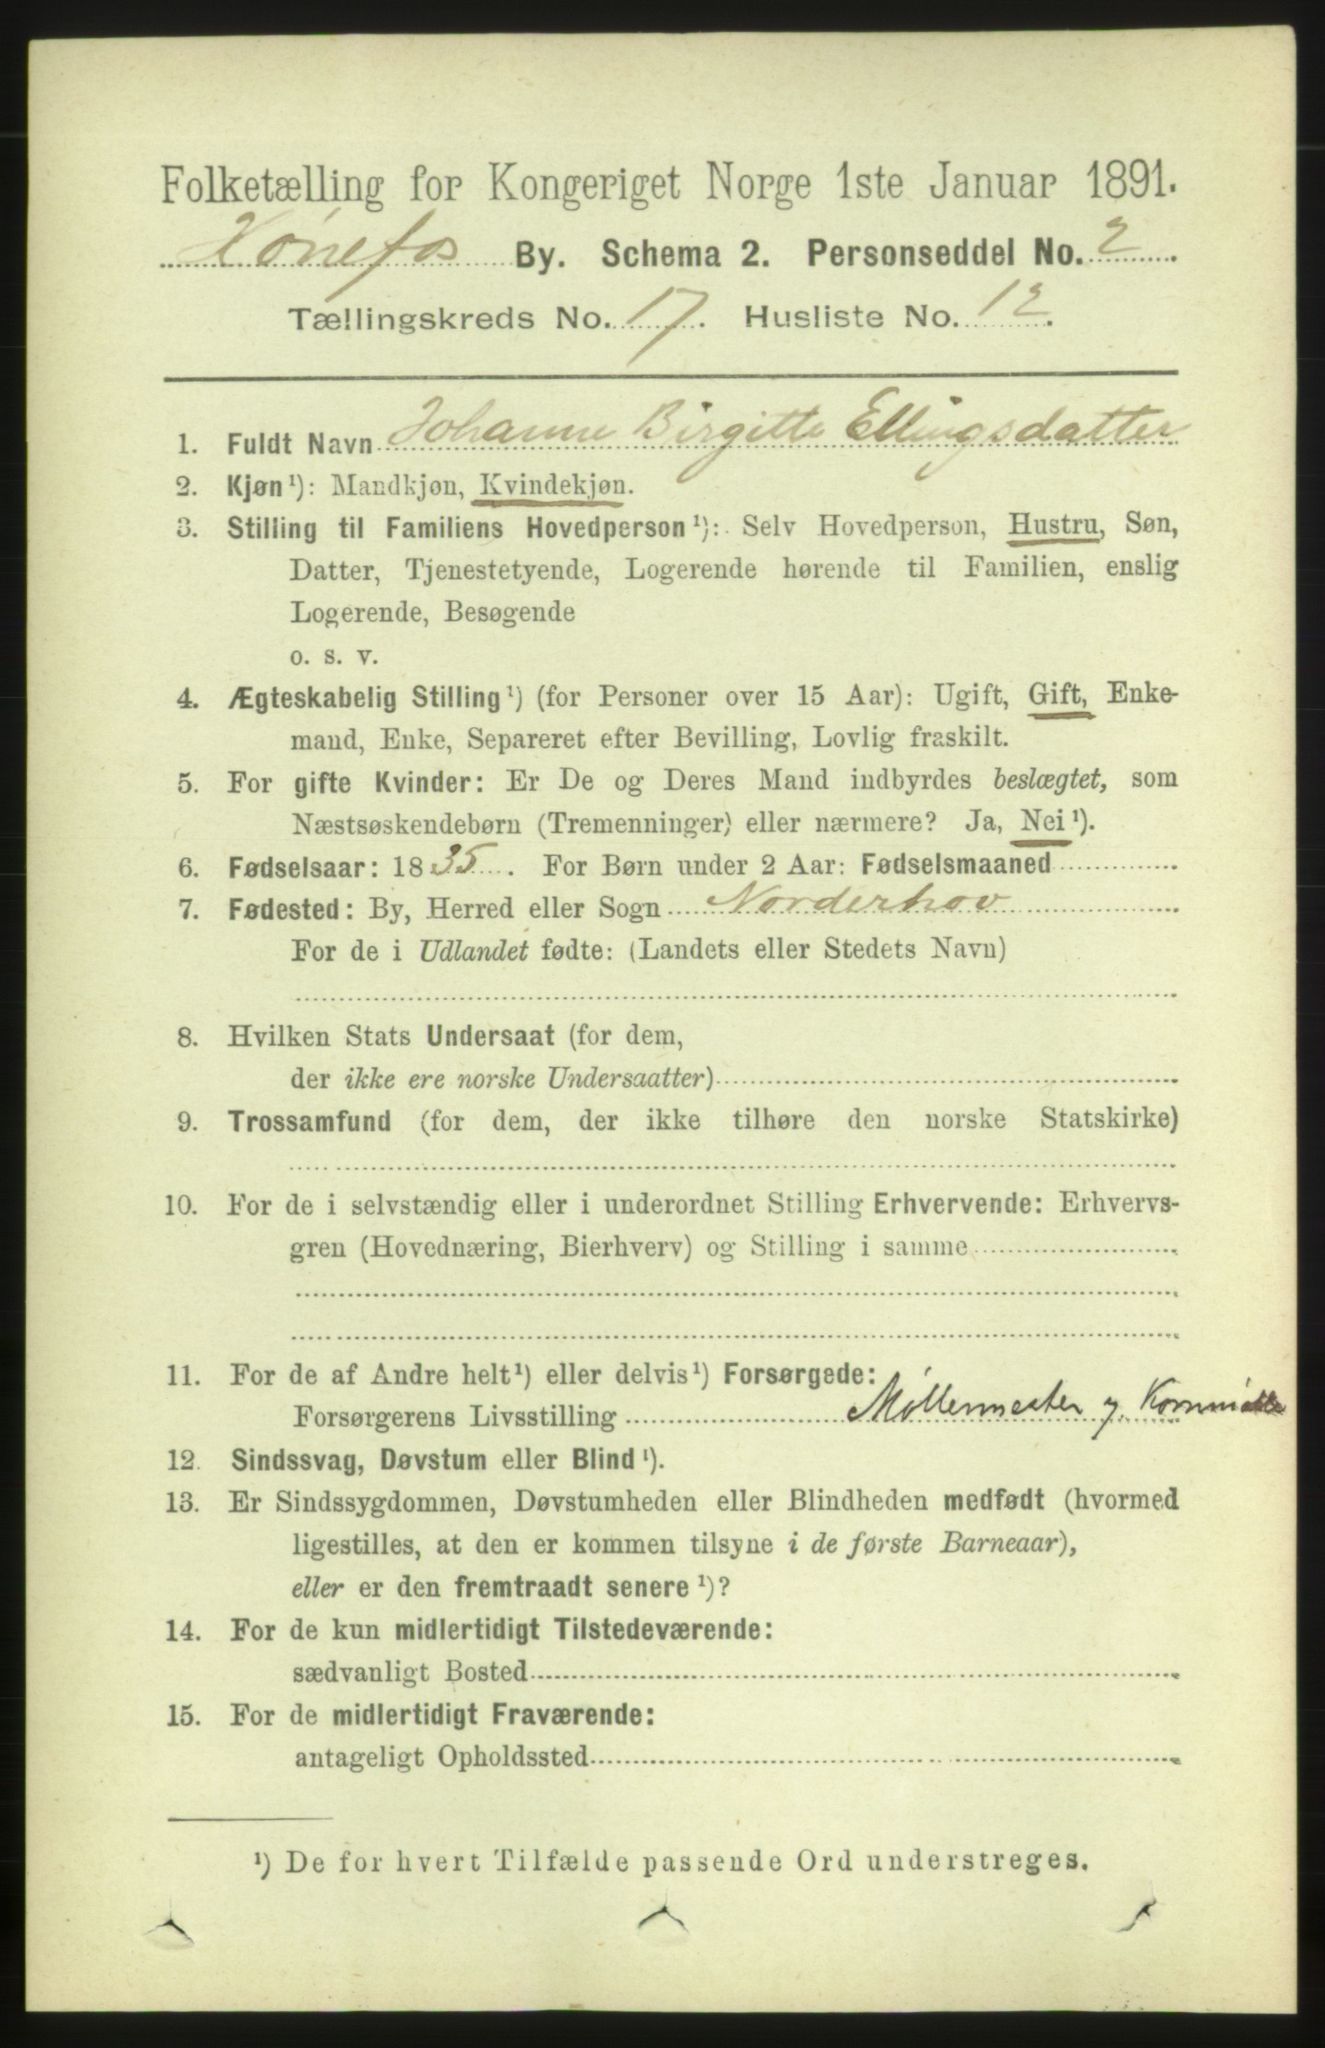 Folketælling for Kongeriget Norge 1ste Januar 1891.
Hønefos By. Schema 2. Personseddel No. 2
Tællingskreds No. 17. Husliste No. 12.
1. Fuldt Navn Johanne Birgitte Ellingsdatter
2. Kjøn¹): Mandkjøn, Kvindekjøn.
3. Stilling til Familiens Hovedperson¹): Selv Hovedperson, Hustru, Søn,
Datter, Tjenestetyende, Logerende hørende til Familien, enslig
Logerende, Besøgende
o. s. v.
4. Ægteskabelig Stilling¹) (for Personer over 15 Aar): Ugift, Gift, Enke-
mand, Enke, Separeret efter Bevilling, Lovlig fraskilt.
5. For gifte Kvinder: Er De og Deres Mand indbyrdes beslægtet, som
Næstsøskendebørn (Tremenninger) eller nærmere? Ja, Nei¹).
6. Fødselsaar: 1835. For Børn under 2 Aar: Fødselsmaaned
7. Fødested: By, Herred eller Sogn Norderhov
For de i Udlandet fødte: (Landets eller Stedets Navn)
8. Hvilken Stats Undersaat (for dem,
der ikke ere norske Undersaatter)
9. Trossamfund (for dem, der ikke tilhøre den norske Statskirke)
10. For de i selvstændig eller i underordnet Stilling Erhvervende: Erhvervs-
gren (Hovednæring, Bierhverv) og Stilling i samme
11. For de af Andre helt¹) eller delvis¹) Forsørgede:
Forsørgerens Livsstilling Møllermester
12. Sindssvag, Døvstum eller Blind¹).
13. Er Sindssygdommen, Døvstumheden eller Blindheden medfødt (hvormed
ligestilles, at den er kommen tilsyne i de første Barneaar),
eller er den fremtraadt senere¹)?
14. For de kun midlertidigt Tilstedeværende:
sædvanligt Bosted
15. For de midlertidigt Fraværende:
antageligt Opholdssted
¹) De for hvert Tilfælde passende Ord understreges.